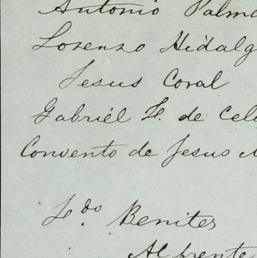 Antonio Palma
Lorenzo Hidalg
Jesus Coral
Gabriél F. de Cel
Convento de Jesus
Fdo. Benites
Al frente